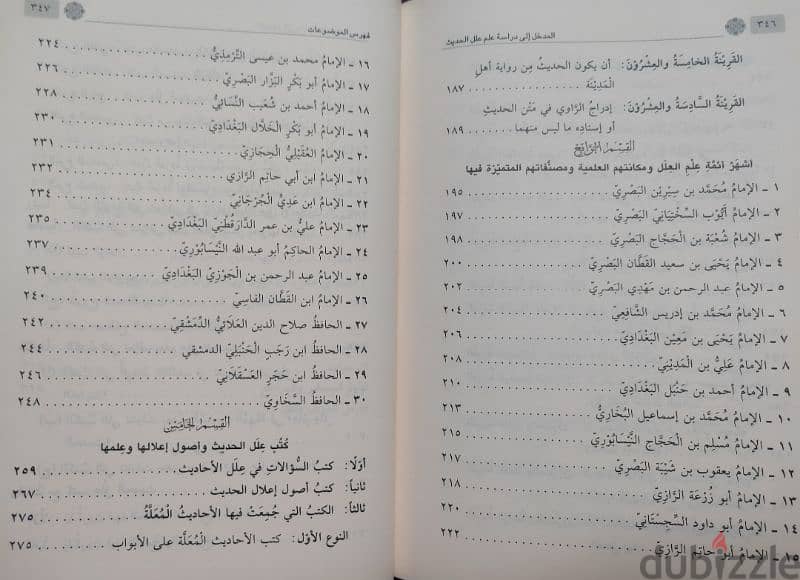 ٣٤٦
المدخل إلى دراسة علم علل الحديث
القَرِينَةُ الخامِسَةُ والعِشْرُوْنَ: أن يكون الحديثُ مِن رواية أهلِ
المَدِيْنَة ١٨٧
القَرِينَةُ السَّادِسَةُ والعِشْرُوْنَ: إدراجُ الرَّاوي في مَتْن الحديثِ
أو إسنادِه ما ليس منهما ١٨٩
القِسْمُ الرَّابِعُ
أشهَرُ أئمَّةِ عِلْمِ العِلَلِ ومكانتهم العلمية ومصنَّفاتهم المتميِّزة فيها
١ ـ الإمامُ مُحَمَّد بن سِيْرِيْن البَصْرِيّ ١٩٥
٢ ـ الإمامُ أيُّوب السِّخْتِيَانيّ البَصْرِيّ ١٩٧
٣ ـ الإمامُ شُعْبَة بن الحَجَّاج البَصْرِيّ ١٩٨
٤ ـ الإمامُ يَحْيَى بن سعيد القَطَّان البَصْرِيّ ٢٠٠
٥ ـ الإمامُ عبد الرحمن بن مَهْدِي البَصْرِيّ ٢٠٢
٦ ـ الإمامُ مُحَمَّد بن إدريس الشَّافِعِيّ ٢٠٤
٧ ـ الإمامُ يَحْيَى بن مَعِيْن البَغْدَادِيّ ٢٠٦
٨ ـ الإمامُ عَلِيُّ بن المَدِيْنِيّ ٢٠٨
٩ ـ الإمامُ أحمد بن حَنْبَل البَغْدَادِيّ ٢١٠
١٠ ـ الإمامُ مُحَمَّد بن إسماعيل البُخَارِيُّ ٢١٣
١١ ـ الإمامُ مُسْلِم بن الحَجَّاج النَّيْسَابُوْرِيُّ ٢١٥
١٢ ـ الإمامُ يعقوب بن شَيْبَة البَصْرِيُّ ٢١٧
١٣ ـ الإمامُ أبو زُرْعَة الرَّازِيُّ ٢١٨
١٤ ـ الإمامُ أبو داود السِّجِسْتَانِيّ ٢٢٠
١٥ ـ الإمامُ أبو حاتِم الرَّازِيّ ٢٢٢
فهرس الموضوعات
٣٤٧
١٦ ـ الإمامُ محمد بن عيسى التِّرْمِذِيُّ ٢٢٤
١٧ ـ الإمامُ أبو بَكْر البَزَّار البَصْرِيُّ ٢٢٦
١٨ ـ الإمامُ أحمد بن شُعَيْب النَّسَائِيُّ ٢٢٨
١٩ ـ الإمامُ أبو بَكْر الخَلَّال البَغْدَادِيُّ ٢٣٠
٢٠ ـ الإمامُ العُقَيْلِيُّ الحِجَازِيّ ٢٣١
٢١ ـ الإمامُ ابن أبي حاتِم الرَّازي ٢٣٢
٢٢ ـ الإمامُ ابن عَدِيّ الجُرْجَانِيّ ٢٣٤
٢٣ ـ الإمامُ عليُّ بن عمر الدَّارَقُطْنِيّ البَغْدَادِيّ ٢٣٥
٢٤ ـ الإمامُ الحاكِمُ أبو عبد الله النَّيْسَابُوْرِيّ ٢٣٧
٢٥ ـ الإمامُ عبد الرحمن بن الجَوْزِيّ البَغْدَادِيّ ٢٣٩
٢٦ ـ الإمامُ ابن القَطَّان الفاسِيّ ٢٤٠
٢٧ ـ الحافظُ صلاح الدين العَلَائيُّ الدِّمَشْقِيّ ٢٤٢
٢٨ ـ الحافظُ ابن رَجَب الحَنْبَلِيّ الدمشقي ٢٤٤
٢٩ ـ الحافظُ ابن حَجَر العَسْقَلَانِيّ ٢٤٦
٣٠ ـ الحافظُ السَّخَاوِيّ ٢٤٨
القِسْمُ الخَامِسُ
كُتُبُ عِلَل الحديث وأصول إعلالها وعِلمها
أوَّلًا: كتبُ السُّؤالاتِ في عِلَل الأحاديث ٢٥٩
ثانياً: كتبُ أصول إعلال الحديث ٢٦٧
ثالثاً: الكتبُ التي جُمِعَتْ فيها الأحاديثُ المُعَلَّةُ ٢٧٥
النوع الأوَّل: كتب الأحاديث المُعَلَّة على الأبواب ٢٧٥
dubizzle